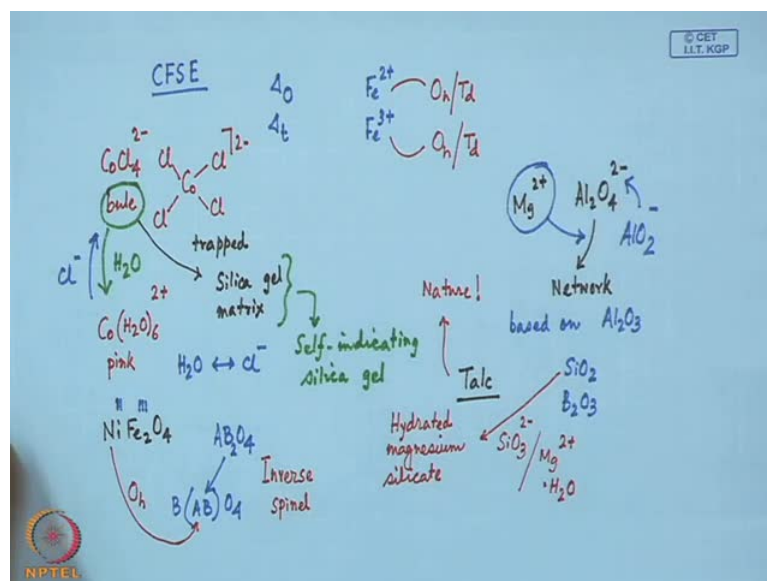 © CET
I.I.T. KGP
CFSE
Δo
Δt
Fe2+ Oh/Td
Fe3+ Oh/Td
CoCl4 2-
Cl Cl 2-
Co
Cl Cl
bule
trapped
Silica gel
matrix
Cl- H2O
Co(H2O)6 2+
pink
H2O ↔ Cl-
Self-indicating
silica gel
Mg2+ Al2O4 2-
AlO2-
Network
based on Al2O3
Nature!
Talc
SiO2
B2O3
Hydrated
magnesium
silicate
SiO3 2-/Mg2+
·H2O
II III
NiFe2O4
AB2O4
Oh
B(AB)O4
Inverse
spinel
NPTEL